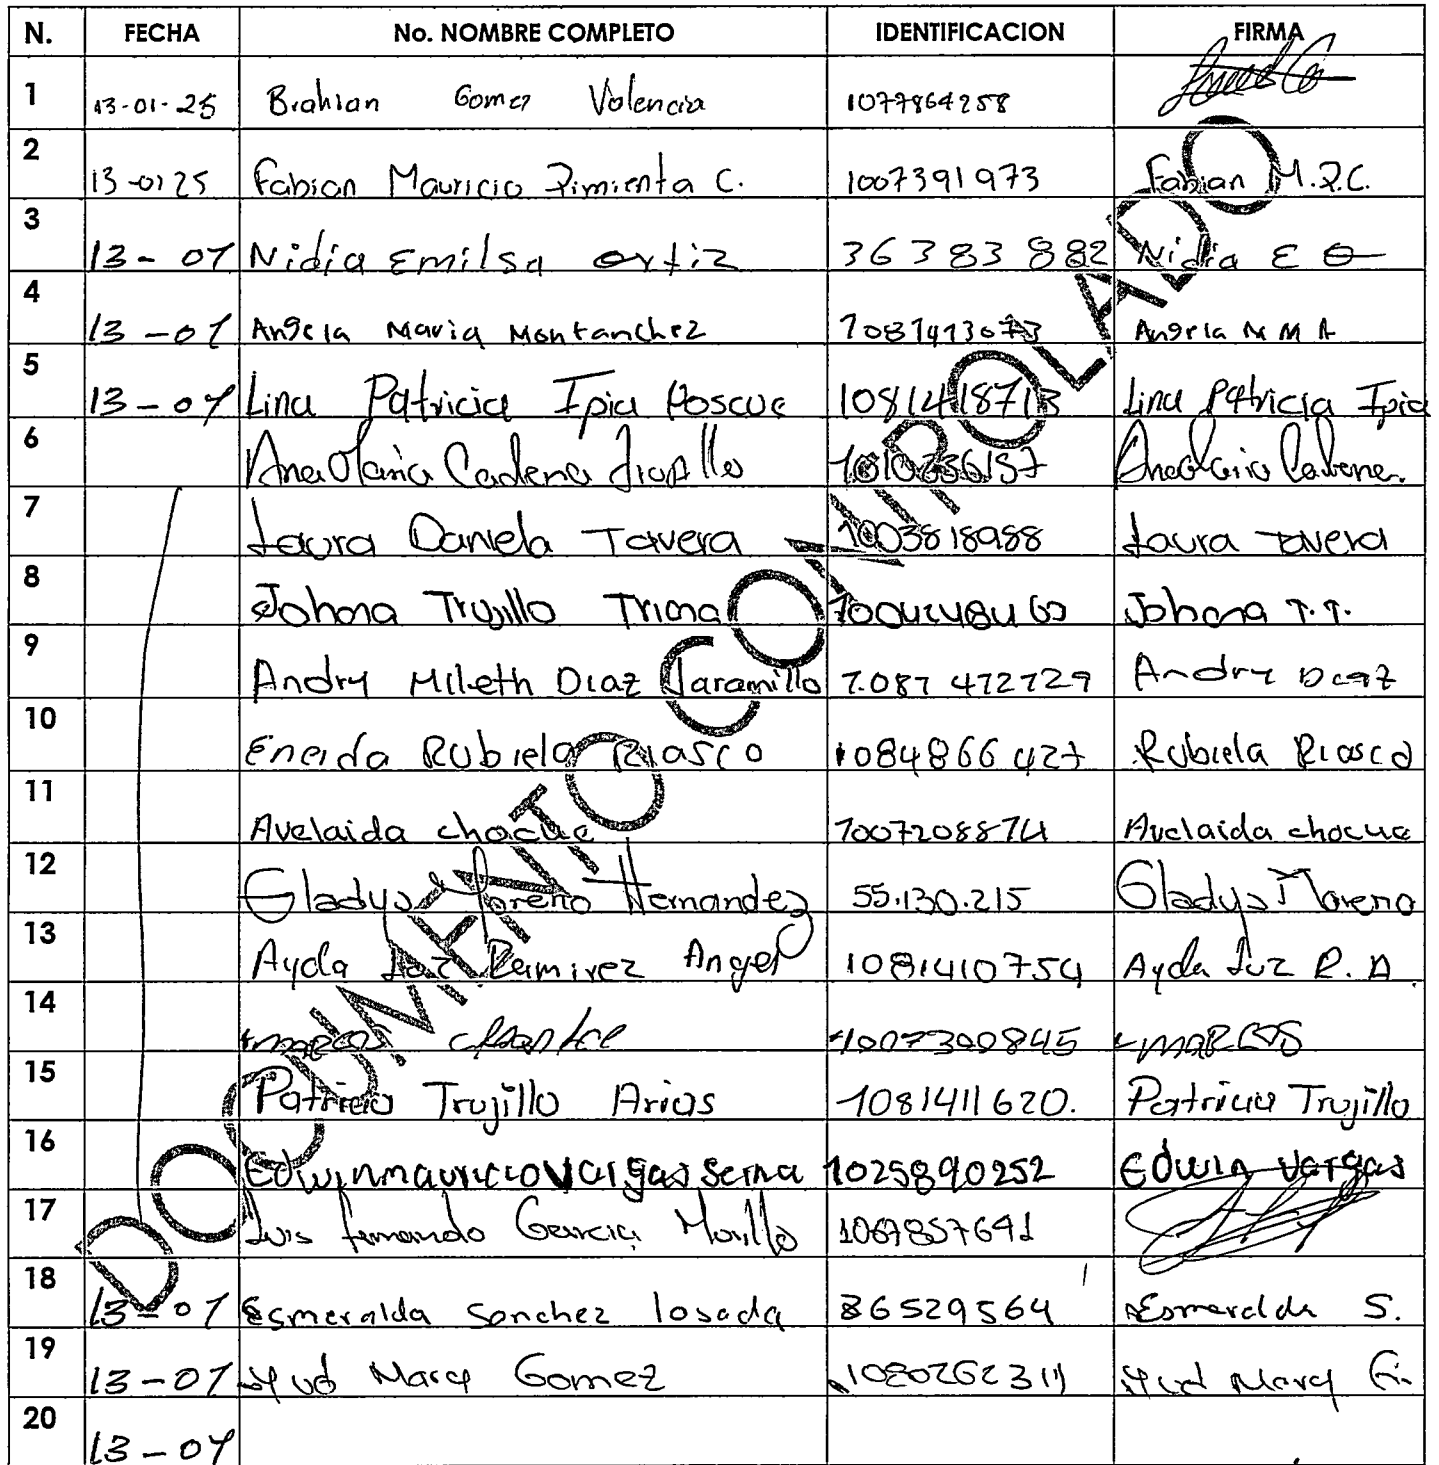 N. FECHA No. NOMBRE COMPLETO IDENTIFICACION FIRMA
1 13-01-25 Brahian Gomez Valencia 1077864258
2 13-01 25 Fabian Mauricio Pimienta C. 1007391973 Fabian M.P.C.
3 13-01 Nidia Emilsa ortiz 36383882 Nidia E O
4 13-01 Angela Maria Montanchez 1081413073 Angela M M A
5 13-01 Lina Patricia Ipia Poscue 1081418713 Lina Patricia Ipia
6 Ana Maria Cadena Trujillo 1010 Ana Maria Cadena.
7 Laura Daniela Tavera 1003818988 Laura Tavera
8 Johana Trujillo Johana T.T.
9 Andry Mileth Diaz Jaramillo 1.081 412129 Andry Diaz
10 Eneida Rubiela Riasco 1084866427 Rubiela Riasco
11 Avelaida chocue 1007208874 Avelaida chocue
12 Gladys Moreno Hernandez 55.130.215 Gladys Moreno
13 Ayda Luz Ramirez Angel 1081410754 Ayda Luz R. A
14 marcos 1007300845 marcos
15 Patricia Trujillo Arias 1081411620. Patricia Trujillo
16 Edwin mauricio Vargas serna 1025890252 Edwin Vargas
17 Luis fernando Garcia Morillo 1067857641
18 13-01 Esmeralda Sanchez losada 36529564 Esmeralda S.
19 13-01 Yud Mary Gomez 1080262311 Yud Mary G.
20 13-01
DOCUMENTO CONTROLADO